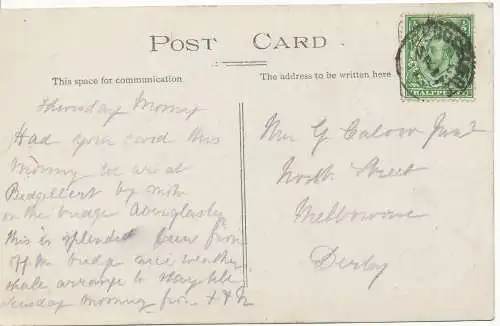 POST CARD
This space for communication
The address to be written here
HALFPENNY
Thursday Morning
Had your card this
morning we are at
Bedgellert by moto
on the bridge Aberglasly
this is splendid
off the bridge weather
shale arrange to stay till
tuesday morning from
Mr G Calow Junr
North Street
Melbourne
Derby